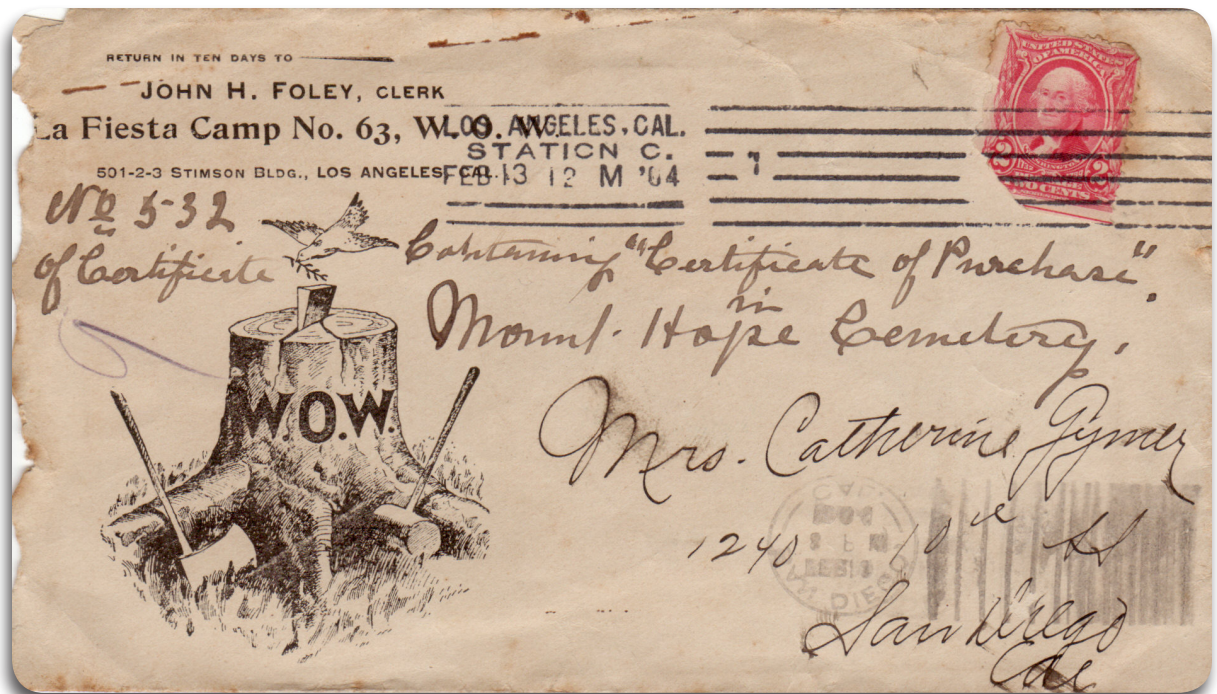 RETURN IN TEN DAYS TO
JOHN H. FOLEY, CLERK
La Fiesta Camp No. 63, W.O.W.
501-2-3 STIMSON BLDG., LOS ANGELES, CAL.
LOS ANGELES, CAL.
STATION C.
FEB 13 12 M '04
1
UNITED STATES
OF AMERICA
2 2
TWO CENTS
No 532
of Certificate
Containing "Certificate of Purchase",
in
Mount Hope Cemetery,
W.O.W.
Mrs. Catherine Gymer
1240 10th St
San Diego
Cal
CAL.
FEB 13
SAN DIEGO